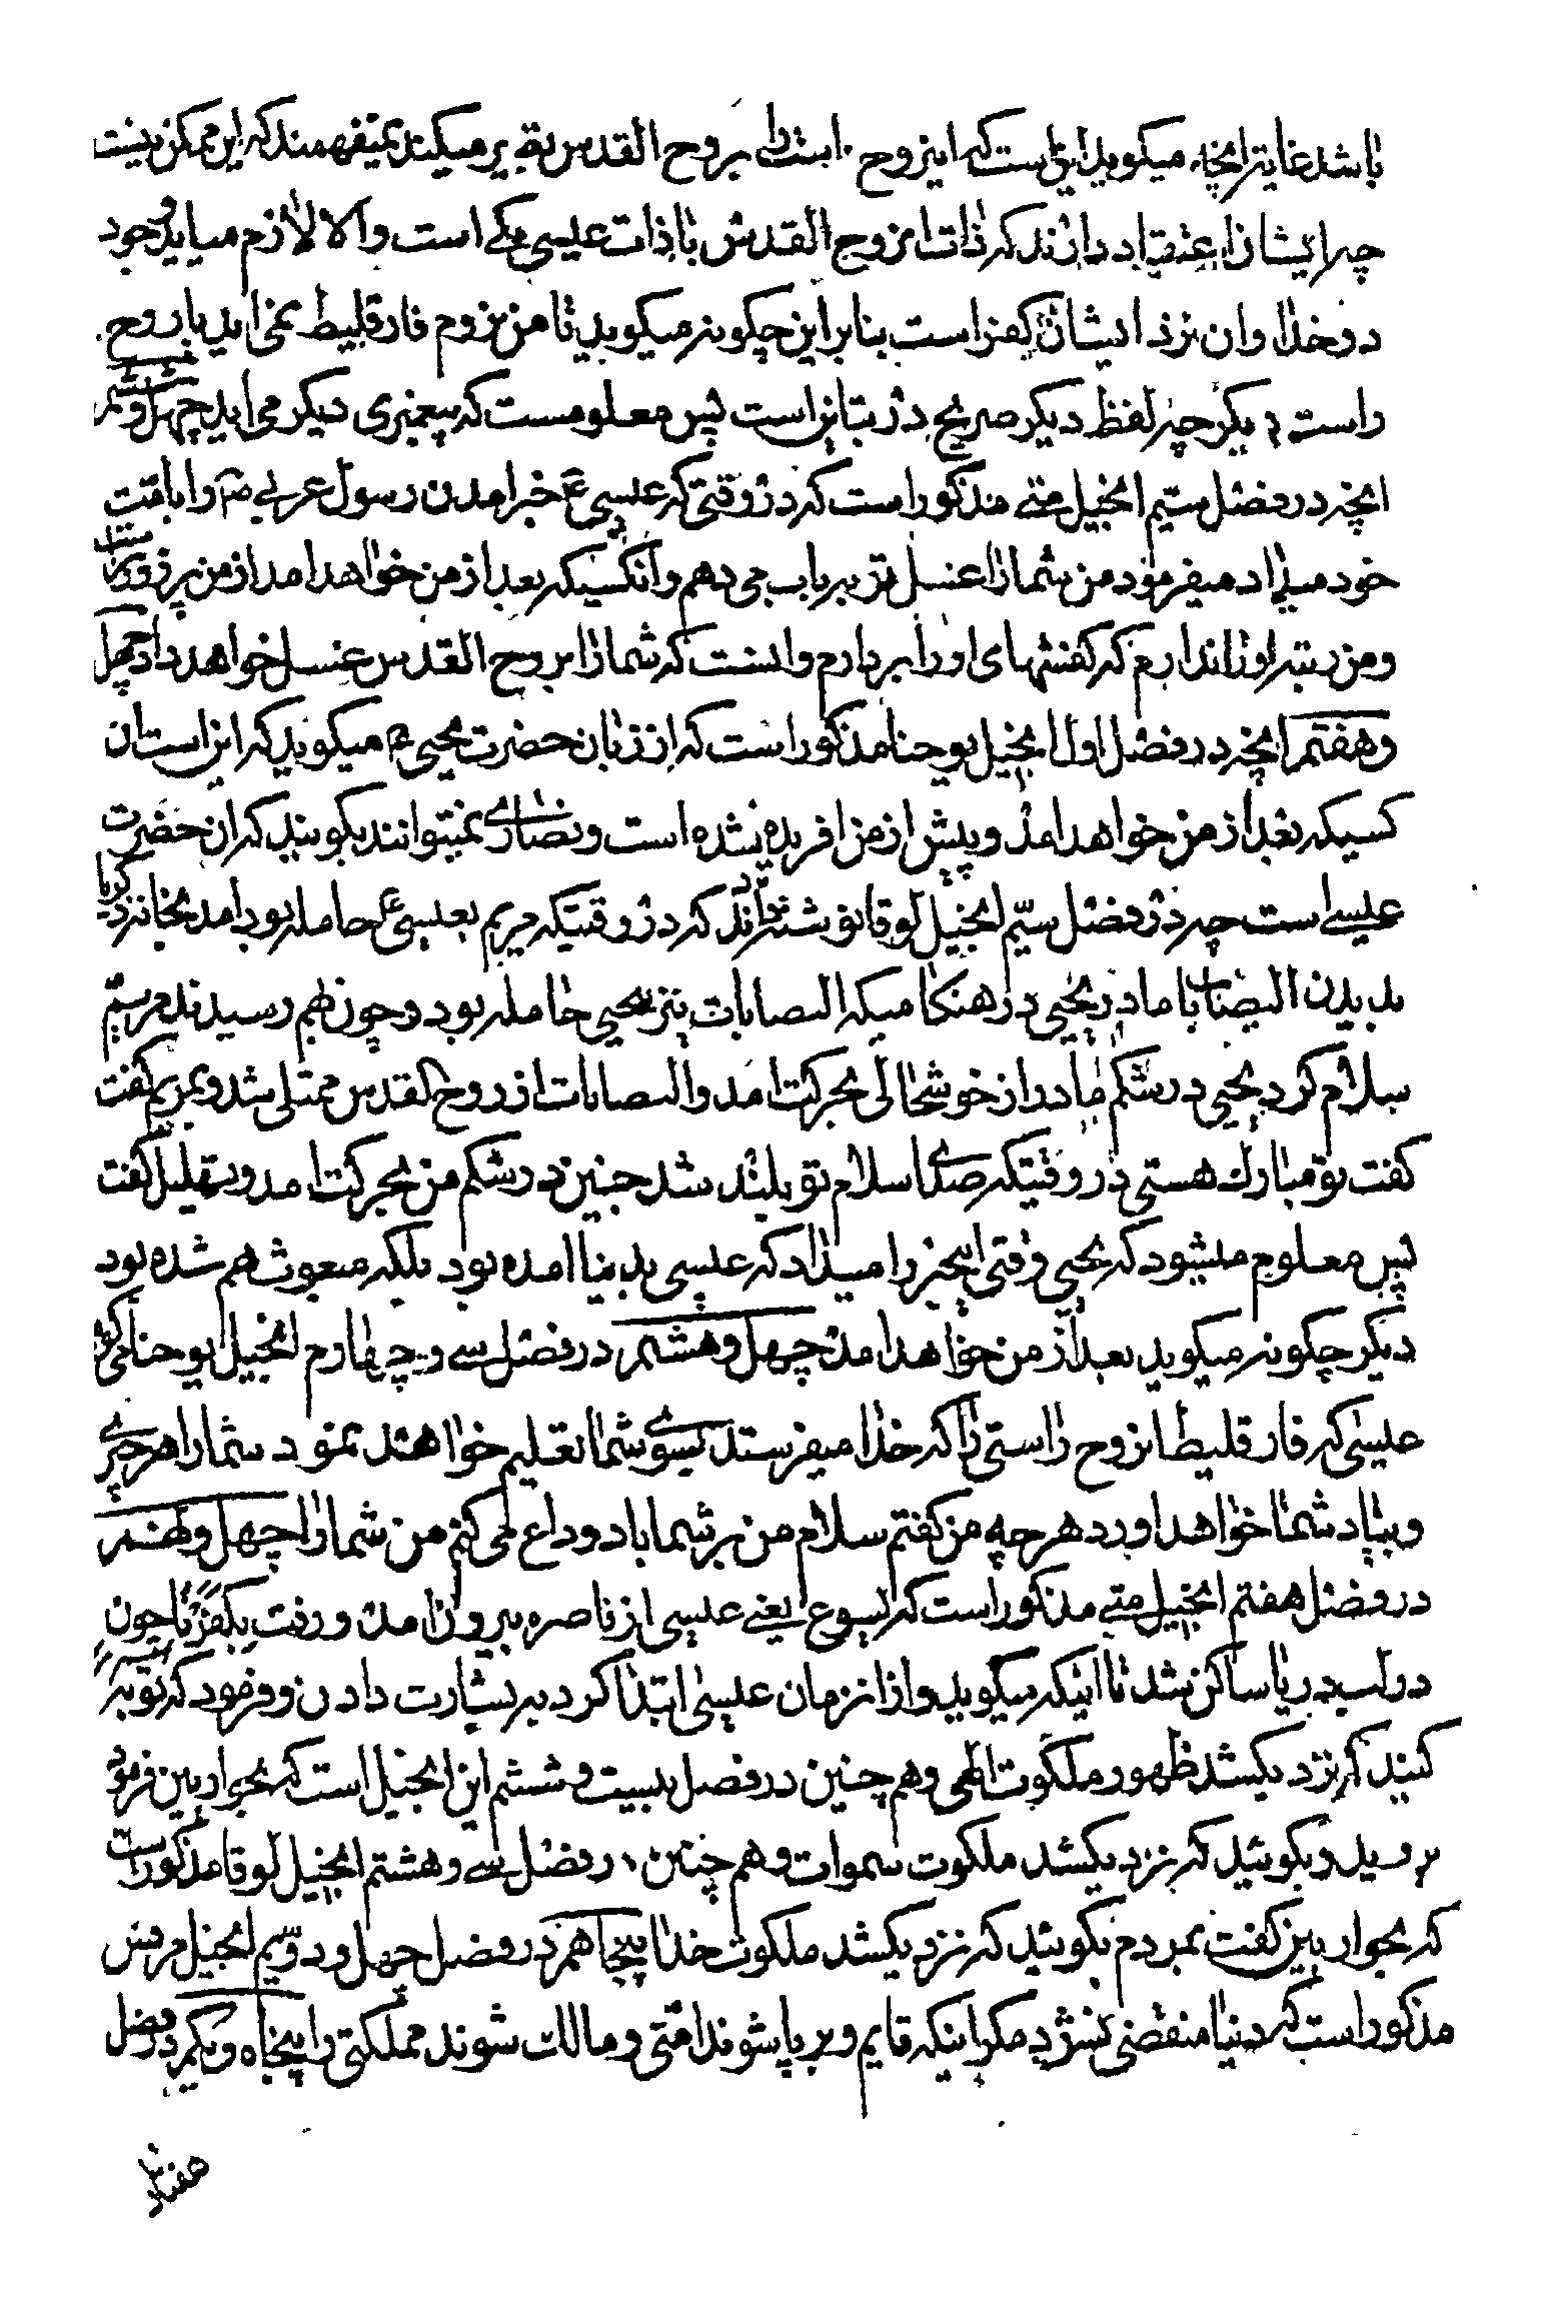 باشد غایة انچه میکویند این است که این روح راست را بروح القدس تعبیر میکنند نمیفهمند که این ممکن نیست
چه ایشان اعتقاد دارند که ذات روح القدس با ذات عیسی یکی است والا لازم میاید وجود
دو خدا و ان نزد ایشان کفر است بنابراین چکونه میکوید تا من نروم فارقلیط نمی اید با روح
راست دیکر چه لفظ دیکر صریح در تباین است پس معلومست که پیغمبری دیکر می اید چهل و ششم
انچه در فصل سیّم انجیل متی مذکور است که در وقتی که عیسی ع خبر امدن رسول عربی ص را بامّت
خود میداد میفرمود من شما را غسل توبه باب می دهم و انکسیکه بعد از من خواهد امد از من پرزورتر است
و من رتبه او را ندارم که کفشهای او را بردارم و اوست که شما را بروح القدس غسل خواهد داد چهل
و هفتم انچه در فصل اول انجیل یوحنا مذکور است که از زبان حضرت یحیی ع میکوید که این است ان
کسیکه بعد از من خواهد امد و پیش از من افریده شده است و نصاری نمیتوانند بکویند که ان حضرت
عیسی است چه در فصل سیّم انجیل لوقا نوشته اند که در وقتیکه مریم بعیسی ع حامله بود امد بخانه زکریا
بدیدن الیصابات با مادر یحیی در هنکامیکه الیصابات نیز بیحیی حامله بود و چون بهم رسیدند مریم
سلام کرد یحیی در شکم مادر از خوشحالی بحرکت امد و الیصابات از روح القدس ممتلی شد و بمریم کفت
کفت تو مبارک هستی در وقتیکه صدای سلام تو بلند شد جنین در شکم من بحرکت امد و تهلیل کفت
پس معلوم میشود که یحیی وقتی اینخبر را میداد که عیسی بدنیا امده بود بلکه مبعوث هم شده بود
دیکر چکونه میکوید بعد از من خواهد امد چهل و هشتم در فصل سی و چهارم انجیل یوحنا می کوید
عیسی که فارقلیط روح راستی را که خدا میفرستد بسوی شما تعلیم خواهد نمود شما را هر چیزی
و بیاد شما خواهد اورد هر چه من کفتم سلام من بر شما باد وداع می کنم من شما را چهل و نهم
در فصل هفتم انجیل متی مذکور است که یسوع یعنی عیسی از ناصره بیرون امد و رفت بکفرناحون
در لب دریا ساکن شد تا اینکه میکوید و از انزمان عیسی ابتدا کرد به بشارت دادن و فرمود که توبه
کنید که نزدیک شد ظهور ملکوت الهی و هم چنین در فصل بیست و ششم این انجیل است که بحواریین فرمود
بروید و بکوئید که نزدیک شد ملکوت سموات و هم چنین در فصل سی و هشتم انجیل لوقا مذکور است
که بحواریین کفت بمردم بکوئید که نزدیک شد ملکوت خدا پنجاهم در فصل چهل و دویم انجیل مرقس
مذکور است که دنیا منقضی نشود مکر اینکه قایم و برپا شوند امّتی و مالک شوند مملکتی را پنجاه و یکم در فصل
هفتاد